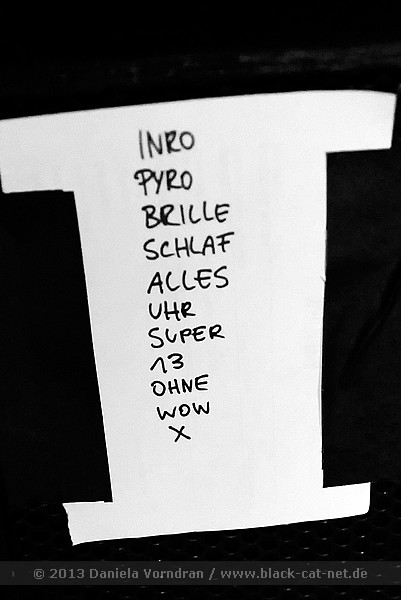 INRO
PYRO
BRILLE
SCHLAF
ALLES
UHR
SUPER
13
OHNE
WOW
X
© 2013 Daniela Vorndran / www.black-cat-net.de